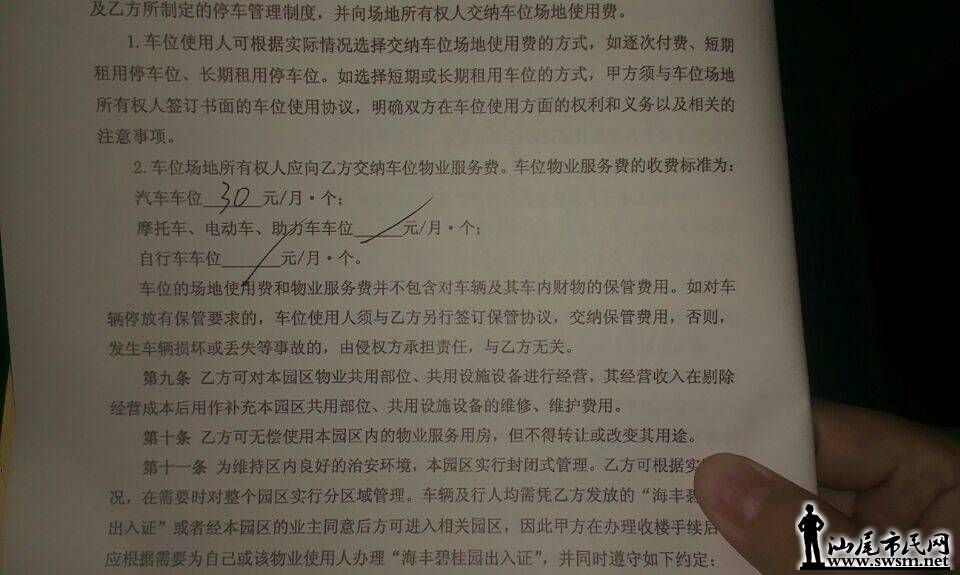 及乙方所制定的停车管理制度，并向场地所有权人交纳车位场地使用费。
1. 车位使用人可根据实际情况选择交纳车位场地使用费的方式，如逐次付费、短期
租用停车位、长期租用停车位。如选择短期或长期租用车位的方式，甲方须与车位场地
所有权人签订书面的车位使用协议，明确双方在车位使用方面的权利和义务以及相关的
注意事项。
2. 车位场地所有权人应向乙方交纳车位物业服务费。车位物业服务费的收费标准为：
汽车车位 30 元/月·个；
摩托车、电动车、助力车车位_____元/月·个；
自行车车位______元/月·个。
车位的场地使用费和物业服务费并不包含对车辆及其车内财物的保管费用。如对车
辆停放有保管要求的，车位使用人须与乙方另行签订保管协议，交纳保管费用，否则，
发生车辆损坏或丢失等事故的，由侵权方承担责任，与乙方无关。
第九条 乙方可对本园区物业共用部位、共用设施设备进行经营，其经营收入在剔除
经营成本后用作补充本园区共用部位、共用设施设备的维修、维护费用。
第十条 乙方可无偿使用本园区内的物业服务用房，但不得转让或改变其用途。
第十一条 为维持区内良好的治安环境，本园区实行封闭式管理。乙方可根据实
况，在需要时对整个园区实行分区域管理。车辆及行人均需凭乙方发放的“海丰碧
出入证”或者经本园区的业主同意后方可进入相关园区，因此甲方在办理收楼手续后
应根据需要为自己或该物业使用人办理“海丰碧桂园出入证”，并同时遵守如下约定：
汕尾市民网
www.swsm.net